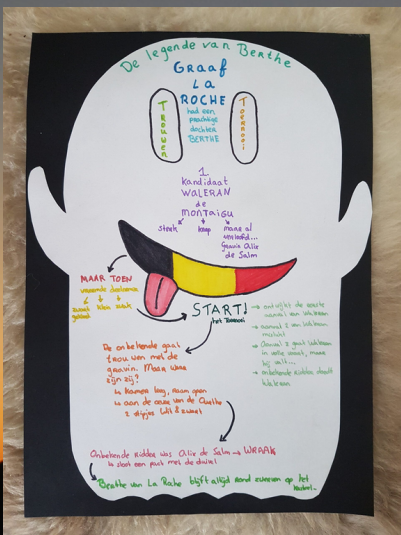 De legende van Berthe
Graaf
La
ROCHE
had een
prachtige
dochter
BERTHE
Trouwen
Toernooi
1.
Kandidaat
WALERAN
de
MONTAIGU
sterk
knap
maar al
verloofd...
Gravin Alix
de Salm
MAAR TOEN
vreemde deelnemer
zwart
klein
zwak
START!
het Toernooi
→ ontwijkt de eerste
aanval van Waleran
→ aanval 2 van Waleran
mislukt
→ Aanval 3 gaat Waleran
in volle vaart, maar
hij valt...
→ onbekende ridder doodt
Waleran
De onbekende gaat
trouwen met de
gravin. Maar waar
zijn zij?
↳ Kamer leeg, raam open
↳ aan de oever van de Ourthe
2 stipjes wit & zwart
Onbekende ridder was Alix de Salm → WRAAK
↳ sloot een pact met de duivel
Berthe van La Roche blijft altijd rond zweven op het
kasteel..